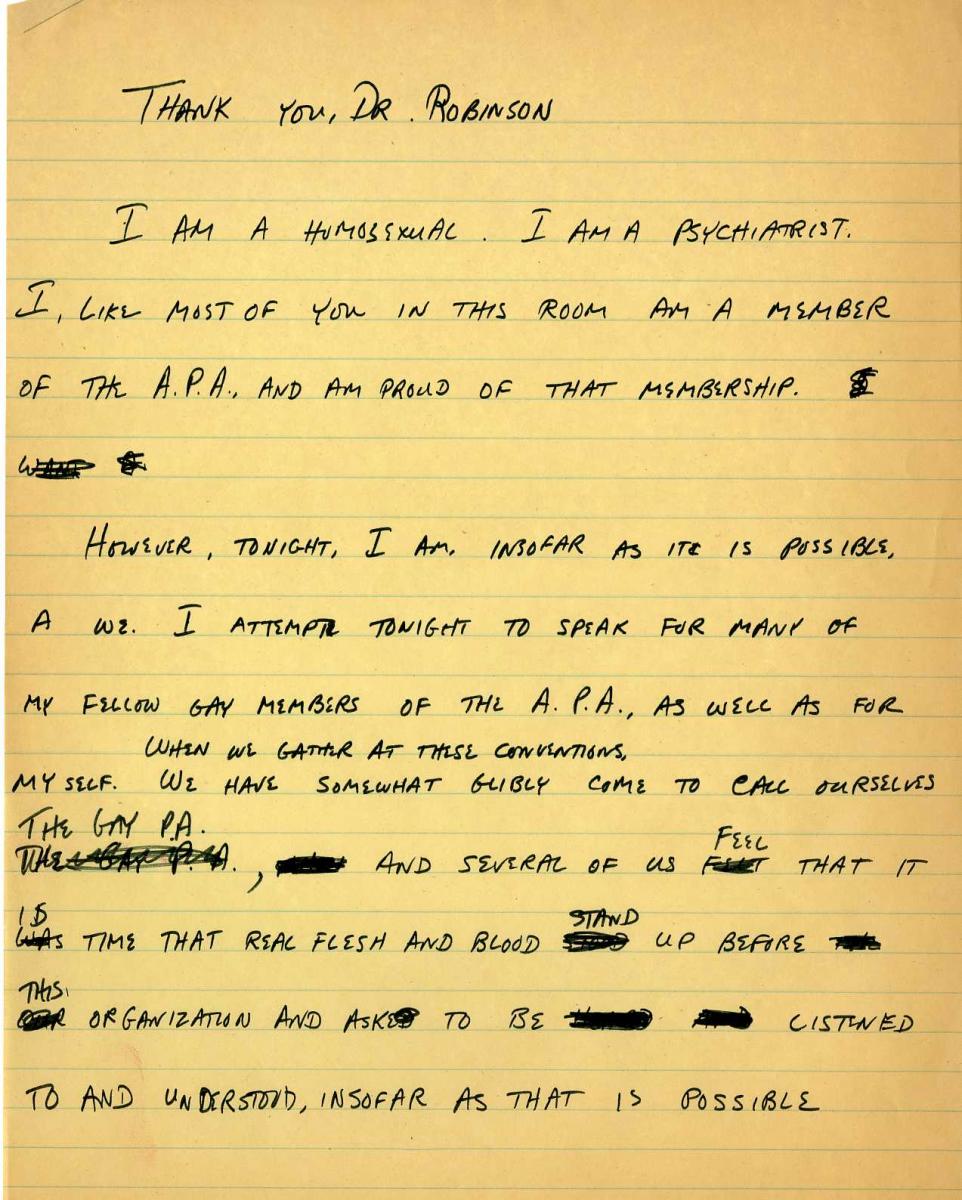 THANK YOU, DR. ROBINSON
I AM A HOMOSEXUAL. I AM A PSYCHIATRIST.
I, LIKE MOST OF YOU IN THIS ROOM AM A MEMBER
OF THE A.P.A., AND AM PROUD OF THAT MEMBERSHIP. I
WANT
HOWEVER, TONIGHT, I AM, INSOFAR AS IT IS POSSIBLE,
A WE. I ATTEMPT TONIGHT TO SPEAK FOR MANY OF
MY FELLOW GAY MEMBERS OF THE A.P.A., AS WELL AS FOR
WHEN WE GATHER AT THESE CONVENTIONS,
MYSELF. WE HAVE SOMEWHAT GLIBLY COME TO CALL OURSELVES
THE GAY P.A.
THE GAY P.A., AND SEVERAL OF US FELT THAT IT
FEEL
IS
WAS TIME THAT REAL FLESH AND BLOOD UP BEFORE
STAND
THIS
OUR ORGANIZATION AND ASK TO BE LISTENED
TO AND UNDERSTOOD, INSOFAR AS THAT IS POSSIBLE